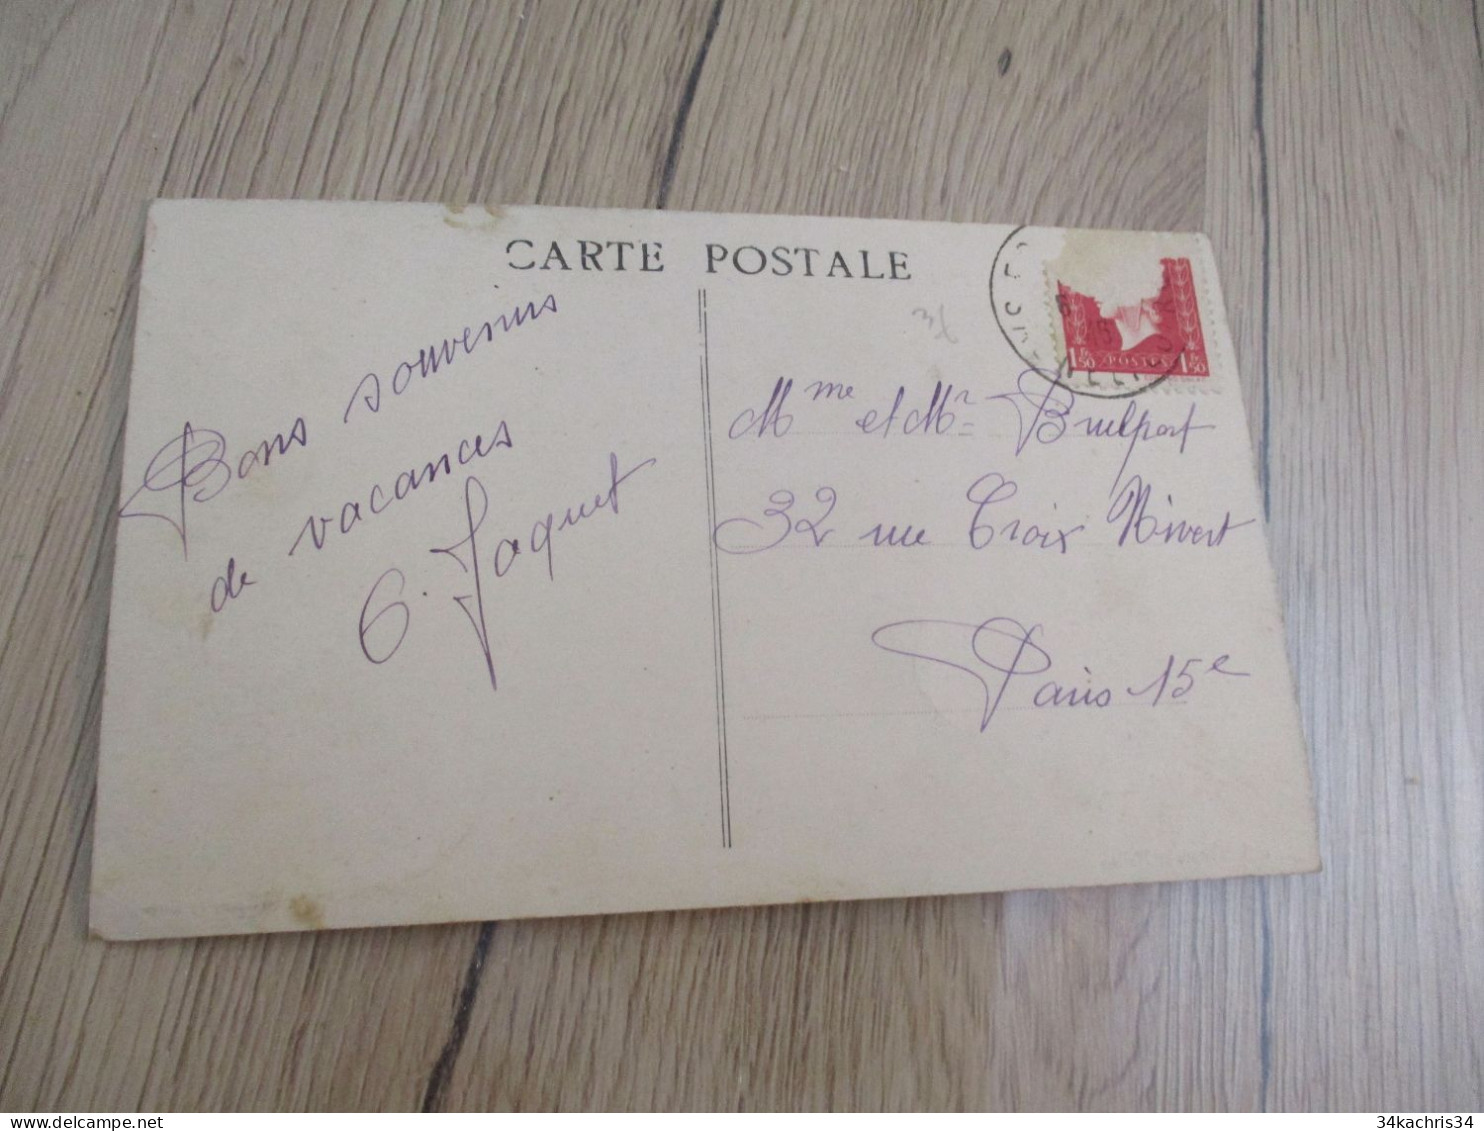 CARTE POSTALE
Bons souvenirs
de vacances
G. Jaquet
1F50 POSTES 1F50
Mme et Mr Bruelport
32 rue Croix Nivert
Paris 15e
delcampe.net
34kachris34